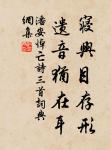 寢興目存形
遺音猶在耳
潘安悼亡詩三首詞典
網集